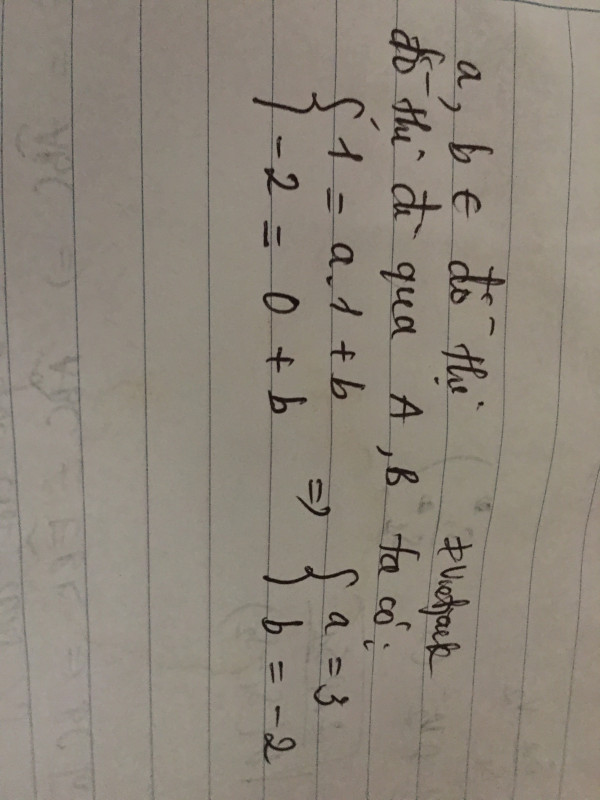 a, b ∈ đồ thị
đồ thị đi qua A, B ta có:
{ 1 = a.1 + b
{ -2 = 0 + b => { a = 3
{ b = -2